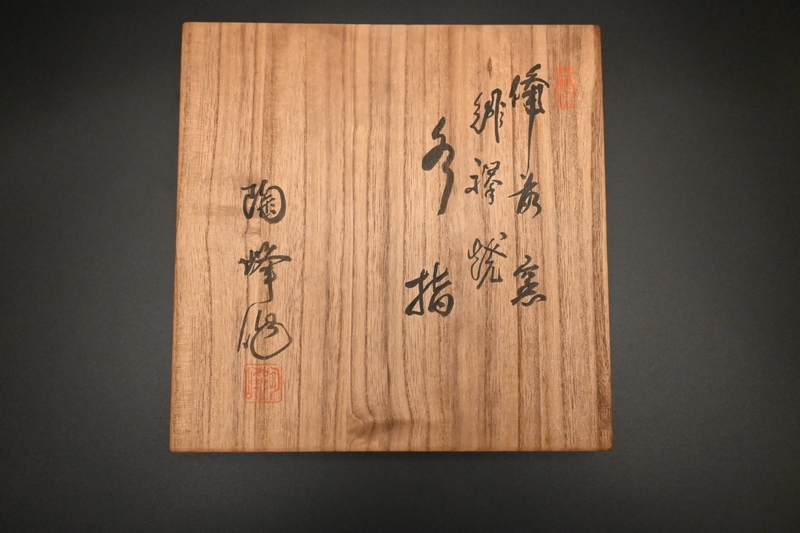 備前窯
緋襷焼
水指
陶峰作